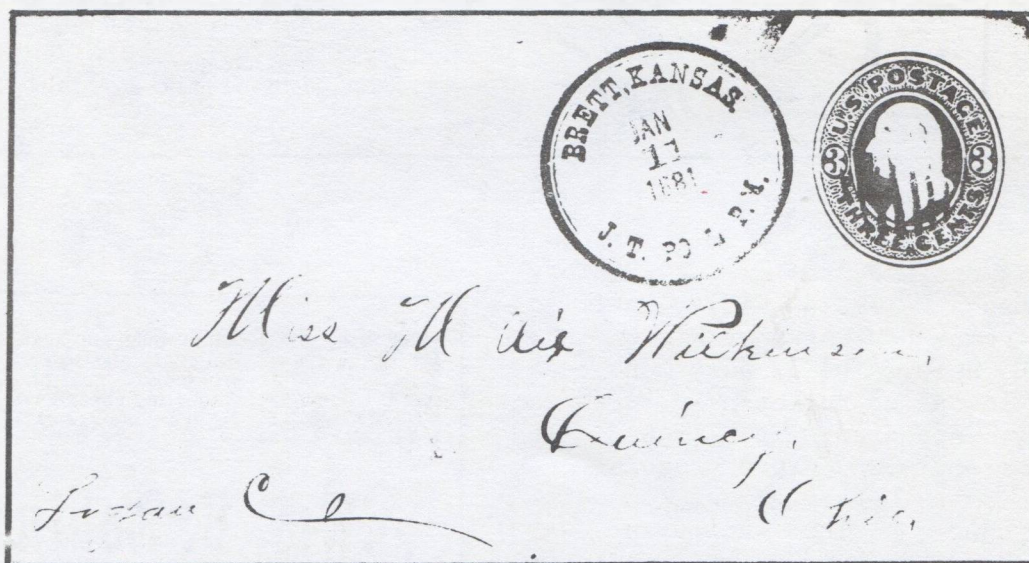 BRETT, KANSAS.
JAN
1881
J. T. P.M.
U.S. POSTAGE
3 3
THREE CENTS
Miss
Quincy,
Logan Co
Ohio